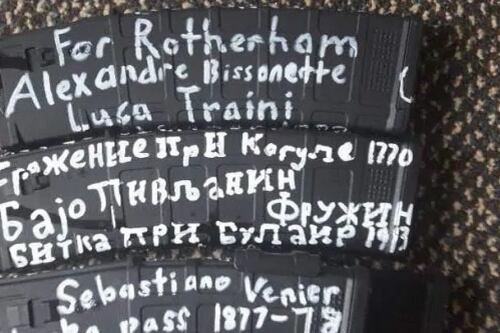 For Rotherham
Alexandre Bissonette
Luca Traini
Сражение при Кагуле 1770
Бајо Пивљанин
Фружин
Битка при Булаир 1913
Sebastiano Venier
pass 1877-78